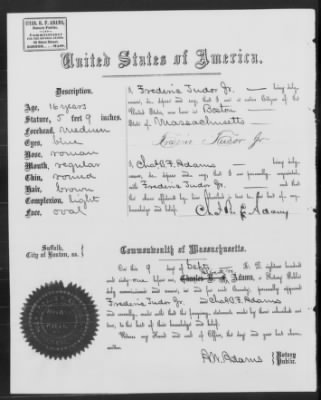 CHAS. B. F. ADAMS,
United States of America.
Description.
Age, 16 years
Stature, 5 feet 9 inches.
Forehead, medium
Eyes, blue
Nose, roman
Mouth, regular
Chin, round
Hair, brown
Complexion, light
Face, oval
I Frederic Tudor Jr. being duly
sworn, do depose and say, that I am a native Citizen of the
United States, and born in Boston
State of Massachusetts
Tudor Jr
I Chas B F. Adams being duly
sworn, do depose and say, that I am personally acquainted
with Frederic Tudor Jr. and that
the above affidavit by him is true to the best of my
knowledge and belief. Chas B F Adams
Suffolk,
City of Boston, ss.
Commonwealth of Massachusetts.
On this 9 day of Sept eighteen hundred
and sixty one before me, Charles B. F. Adams, a Notary Public
duly commissioned and sworn, in and for said County, personally appeared
Frederic Tudor Jr. and Chas B F Adams
and severally made oath that the foregoing statements made by them subscribed are
true, to the best of their knowledge and belief.
Witness my Hand and seal of Office, the day and year last above
written.
Adams Notary
Public.